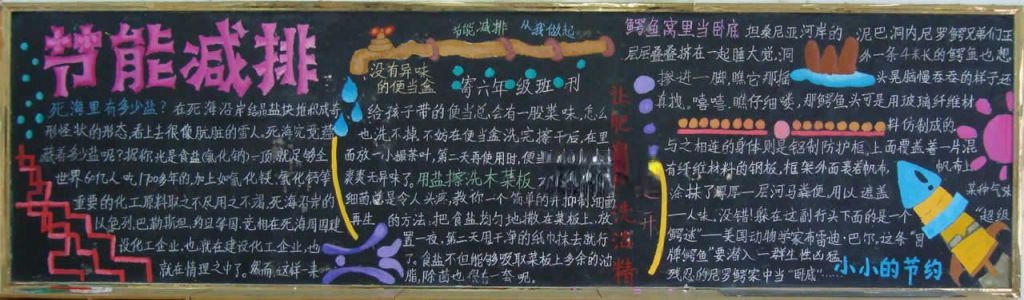 节能减排
死海里有多少盐?在死海沿岸结晶盐块堆积成奇
形怪状的形态,看上去很像肮脏的雪人。死海究竟蕴
藏着多少盐呢?据你光是食盐(氯化钠)一项,就足够全
世界60亿人吃1700多年的,加上如氯化镁、氯化钙等
重要的化工原料取之不尽用之不竭。死海沿岸的
以色列、巴勒斯坦、约旦等国,竞相在死海周围建
设化工企业,也就在建设化工企业,也
就在情理之中了。然而,这样一来
节能减排 从我做起
没有异味
的便当盒
寄六年级班刊
给孩子带的便当总会有一股菜味,怎么
也洗不掉,不妨在便当盒洗完擦干后,在里
面放一小撮茶叶,第二天再使用时,便当
爽爽无异味了。用盐擦洗木菜板
细菌总是令人头疼,教你一个简单的并抑制细菌
再生的方法,把食盐均匀地撒在菜板上,放
置一夜,第二天用干净的纸巾抹去就行
了。食盐不但能够吸取菜板上多余的油
脂,除菌也很有一套呢。
让肥皂洗洁精
走开
鳄鱼窝里当卧底 坦桑尼亚河岸的泥巴洞内尼罗鳄兄弟们正
层层叠叠挤在一起睡大觉,洞外一条4米长的鳄鱼也想
掺进一脚,瞧它那摇头晃脑慢吞吞的样子还
真拽,嘻嘻,瞧仔细喽,那鳄鱼头可是用玻璃纤维材
料仿制成的,
与之相连的身体则是铝制防护框,上面覆盖着一片混
有纤维材料的钢板,框架外面裹着帆布,帆布上
涂抹了厚厚一层河马粪便,用以遮盖某种气味
——人味。没错!躲在这副行头下面的是一个“超级
鳄迷”——美国动物学家布雷迪·巴尔,这条“冒
牌鳄鱼”要潜入一群生性凶猛、
残忍的尼罗鳄家中当“卧底”……
小小的节约